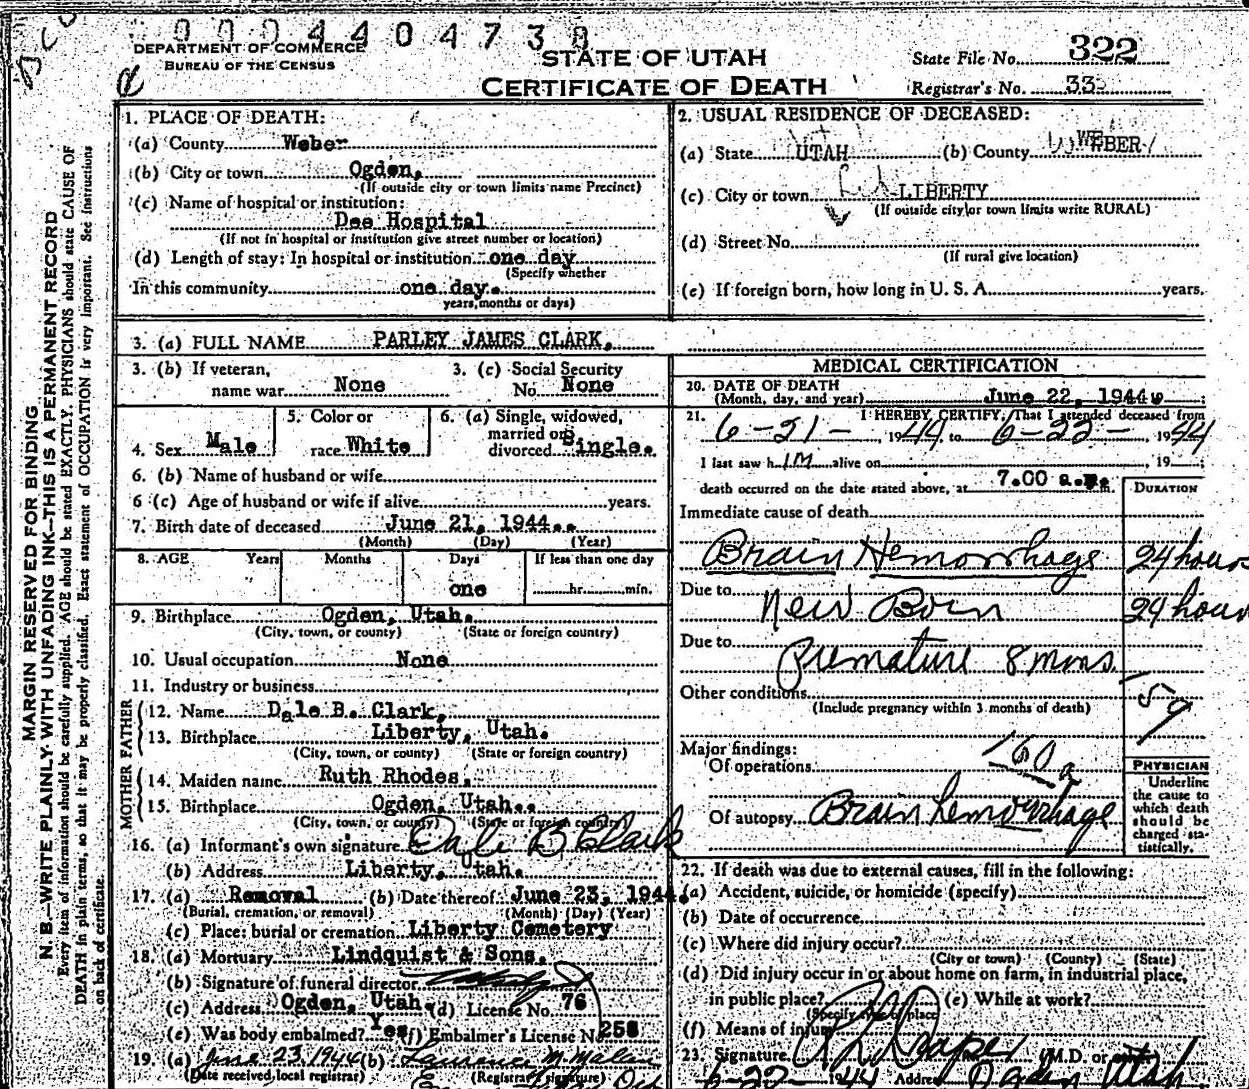 0004404738
DEPARTMENT OF COMMERCE
BUREAU OF THE CENSUS
STATE OF UTAH
CERTIFICATE OF DEATH
State File No. 322
Registrar's No. 33
MARGIN RESERVED FOR BINDING
N. B.—WRITE PLAINLY WITH UNFADING INK—THIS IS A PERMANENT RECORD
Every item of information should be carefully supplied. AGE should be stated EXACTLY. PHYSICIANS should state CAUSE OF
DEATH in plain terms, so that it may be properly classified. Exact statement of OCCUPATION is very important. See instructions
on back of certificate.
1. PLACE OF DEATH:
(a) County Weber
(b) City or town Ogden,
(If outside city or town limits name Precinct)
(c) Name of hospital or institution:
Dee Hospital
(If not in hospital or institution give street number or location)
(d) Length of stay: In hospital or institution one day
(Specify whether
In this community one day.
years, months or days)
2. USUAL RESIDENCE OF DECEASED:
(a) State UTAH (b) County WEBER
(c) City or town LIBERTY
(If outside city or town limits write RURAL)
(d) Street No.
(If rural give location)
(e) If foreign born, how long in U. S. A. years.
3. (a) FULL NAME PARLEY JAMES CLARK,
3. (b) If veteran, name war None
3. (c) Social Security No. None
4. Sex Male
5. Color or race White
6. (a) Single, widowed, married or divorced Single.
6. (b) Name of husband or wife
6 (c) Age of husband or wife if alive years.
7. Birth date of deceased June 21, 1944..
(Month) (Day) (Year)
8. AGE Years Months Days If less than one day
one hr. min.
9. Birthplace Ogden, Utah.
(City, town, or county) (State or foreign country)
10. Usual occupation None
11. Industry or business
FATHER
12. Name Dale B. Clark,
13. Birthplace Liberty, Utah.
(City, town, or county) (State or foreign country)
MOTHER
14. Maiden name Ruth Rhodes,
15. Birthplace Ogden, Utah..
(City, town, or county) (State or foreign country)
16. (a) Informant's own signature Dale B Clark
(b) Address Liberty, Utah.
17. (a) Removal (b) Date thereof June 23, 1944.
(Burial, cremation, or removal) (Month) (Day) (Year)
(c) Place: burial or cremation Liberty Cemetery
18. (a) Mortuary Lindquist & Sons,
(b) Signature of funeral director
(c) Address Ogden, Utah (d) License No. 76
(e) Was body embalmed? Yes (f) Embalmer's License No. 258
19. (a) June 23, 1944 (b) Laurence M. Malan
(Date received local registrar) (Registrar's signature)
MEDICAL CERTIFICATION
20. DATE OF DEATH
(Month, day, and year) June 22, 1944
21. I HEREBY CERTIFY, That I attended deceased from
6-21-, 1944, to 6-22-, 1944
I last saw him alive on , 19
death occurred on the date stated above, at 7.00 a.m.
DURATION
Immediate cause of death
Brain Hemorrhage 24 hours
Due to New Born 24 hour
Due to Premature 8 mos.
Other conditions
(Include pregnancy within 3 months of death)
159
Major findings:
Of operations
160a
Of autopsy Brain hemorrhage
PHYSICIAN
Underline
the cause to
which death
should be
charged sta-
tistically.
22. If death was due to external causes, fill in the following:
(a) Accident, suicide, or homicide (specify)
(b) Date of occurrence
(c) Where did injury occur?
(City or town) (County) (State)
(d) Did injury occur in or about home on farm, in industrial place,
in public place? (e) While at work?
(Specify type of place
(f) Means of injury
23. Signature R L Draper (M.D. or
6-22- 1944 Address Ogden Utah